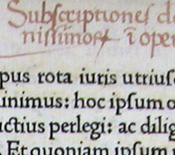 Subscriptiones do
nissimoꝝ ī oper
pus rota iuris utrius
unimus: hoc ipsum o
uctius perlegi: ac dilig
. Et quoniam ipsum